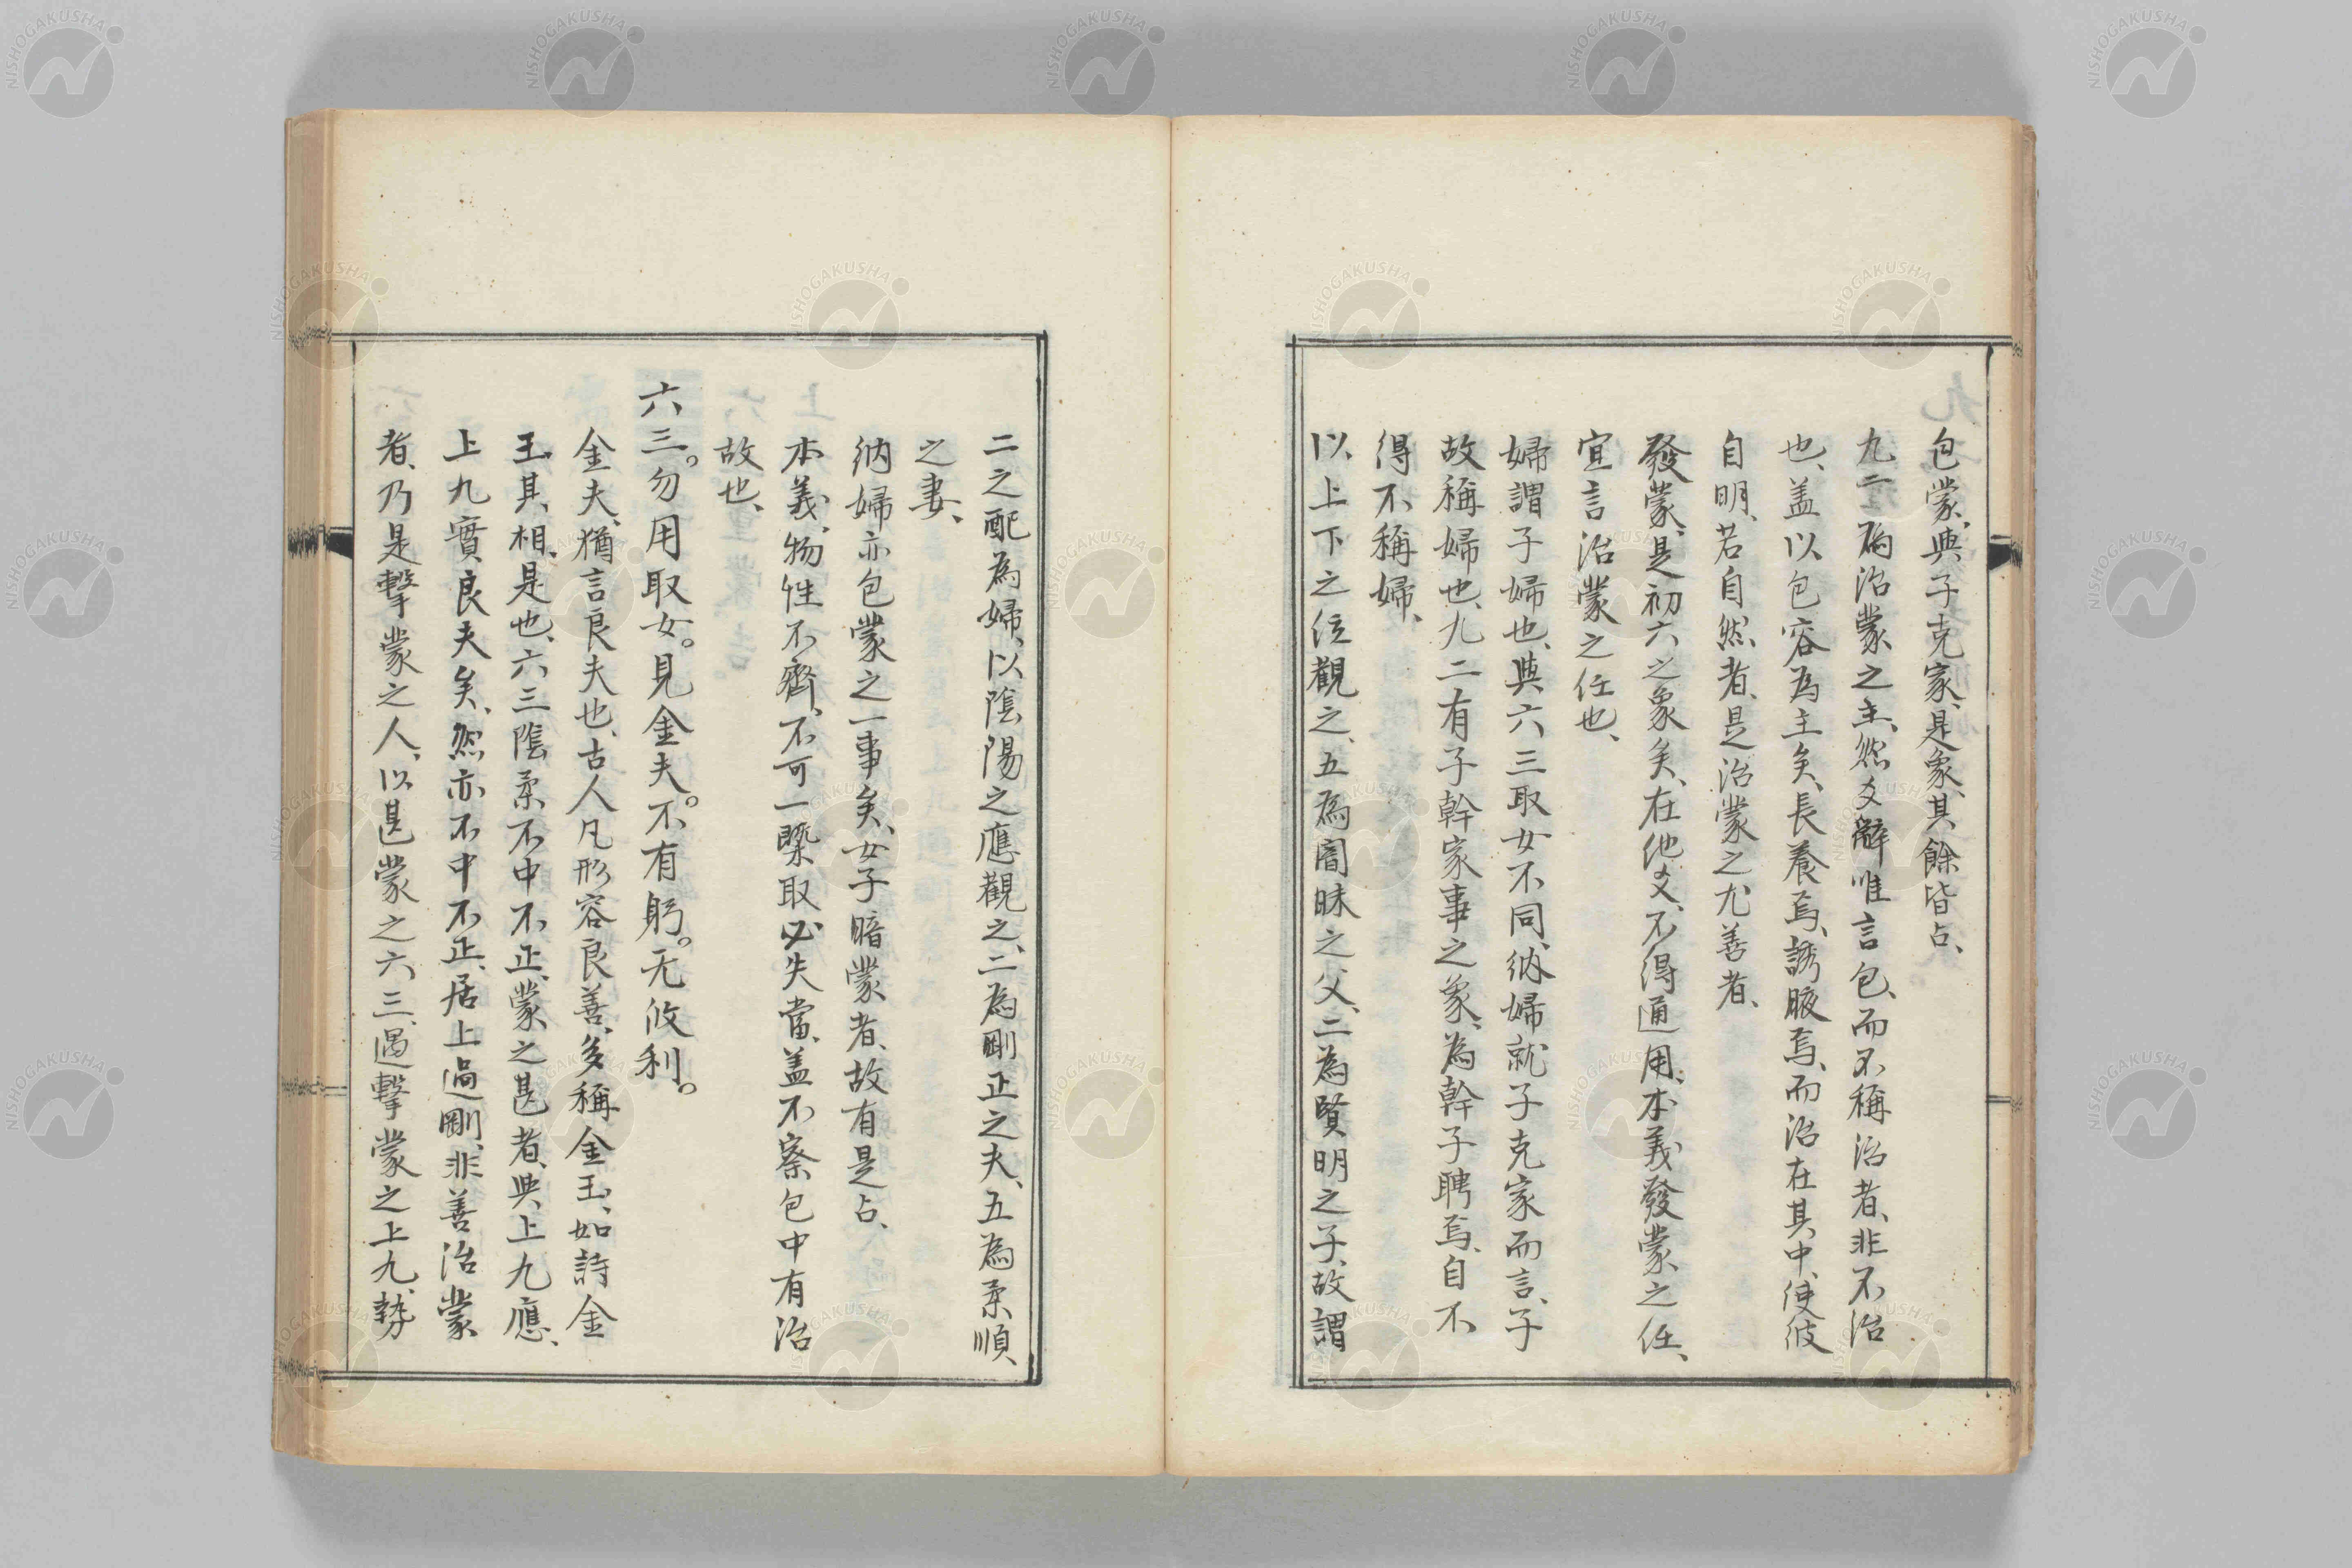 包蒙、與子克家、是象、其餘皆占、
九二爲治蒙之主、然爻辭唯言包、而不稱治者、非不治
也、盖以包容為主矣、長養焉、誘腋焉、而治在其中、使彼
自明、若自然者、是治蒙之尤善者、
發蒙、是初六之象矣、在他爻、不得通用、本義發蒙之任、
宜言治蒙之任也、
婦謂子婦也、與六三取女不同、納婦就子克家而言、子
故稱婦也、九二有子幹家事之象、為幹子聘焉、自不
得不稱婦、
以上下之位觀之、五為闇昧之父、二為賢明之子、故謂
二之配為婦、以陰陽之應觀之、二為剛正之夫、五為柔順、
之妻、
納婦亦包蒙之一事矣、女子暗蒙者、故有是占、
本義、物性不齊、不可一槩取必失當、盖不察包中有治
故也、
六三。勿用取女。見金夫。不有躬。无攸利。
金夫、猶言良夫也、古人凡形容良善、多稱金玉、如詩金
玉其相、是也、六三陰柔不中不正、蒙之甚者、與上九應、
上九實良夫矣、然亦不中不正、居上過剛、非善治蒙
者、乃是擊蒙之人、以甚蒙之六三、遇擊蒙之上九、勢
NISHOGAKUSHA